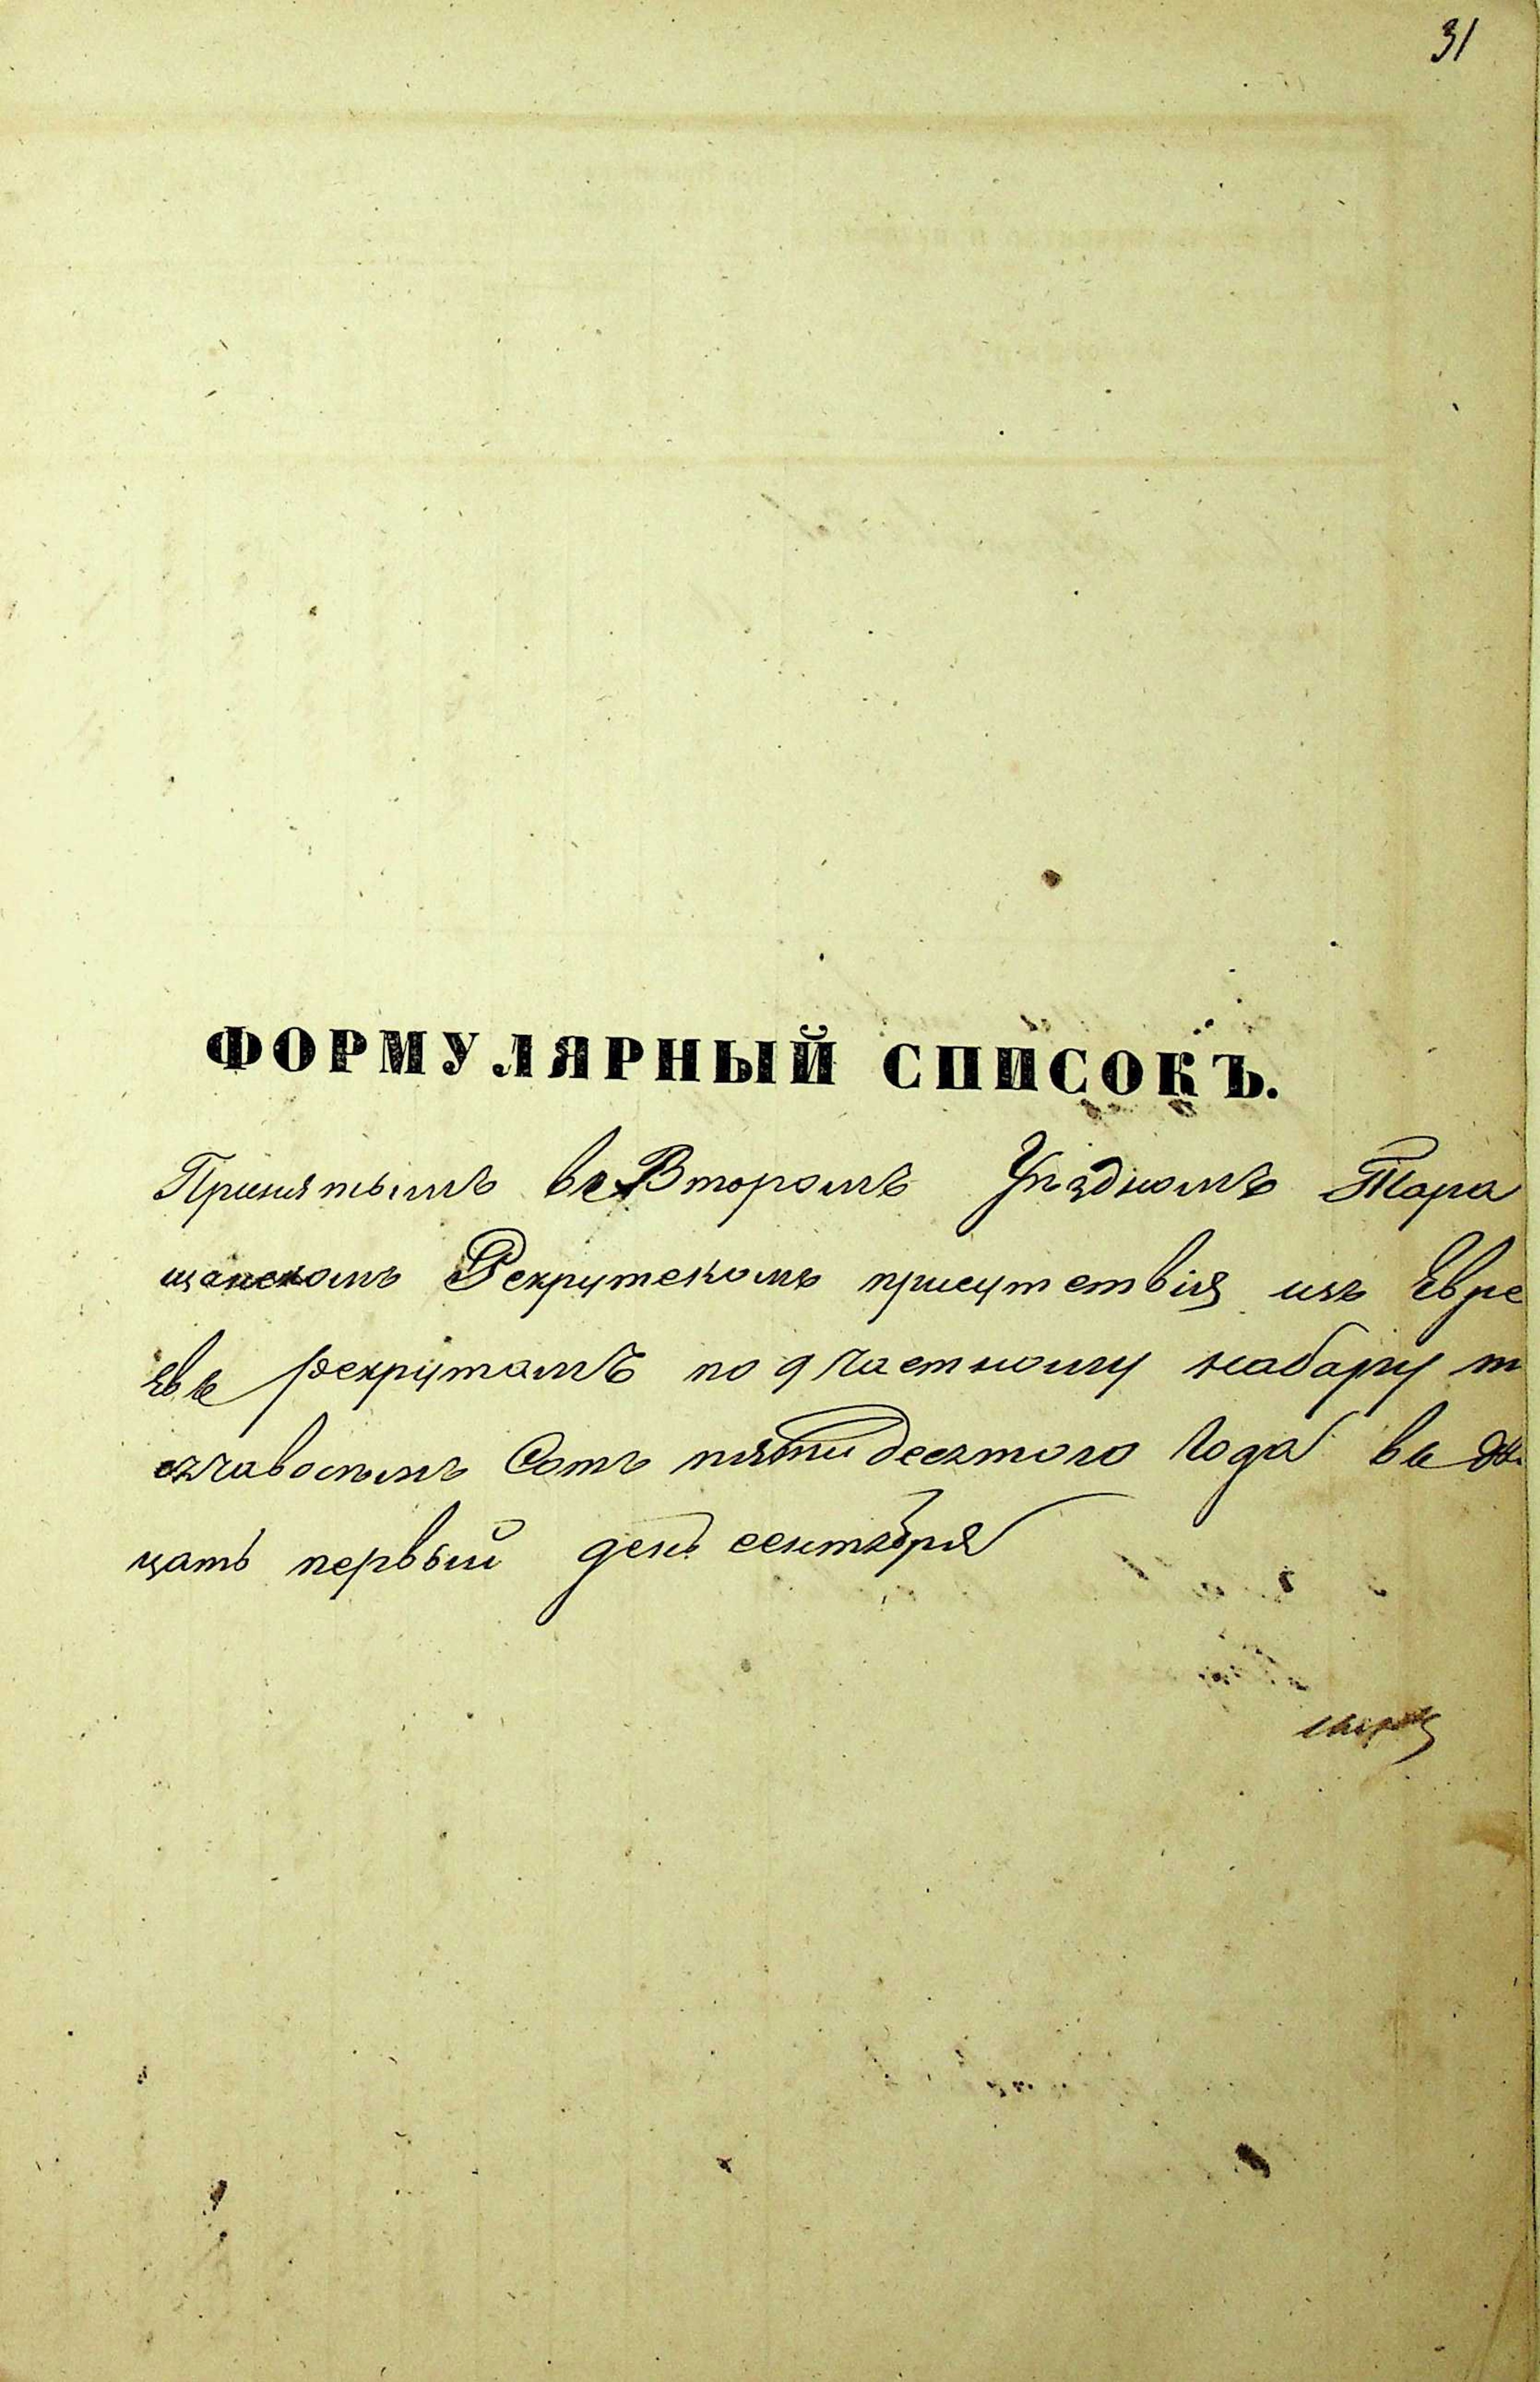 31
ФОРМУЛЯРНЫЙ СПИСОКЪ.
Принятымъ во Второмъ Уѣздномъ Тара
щанскомъ Рекрутскомъ присутствія изъ Евре
евъ рекрутамъ по 9 частному набару т
сотъ пятидесятого Года въ два
цать первый день сентября